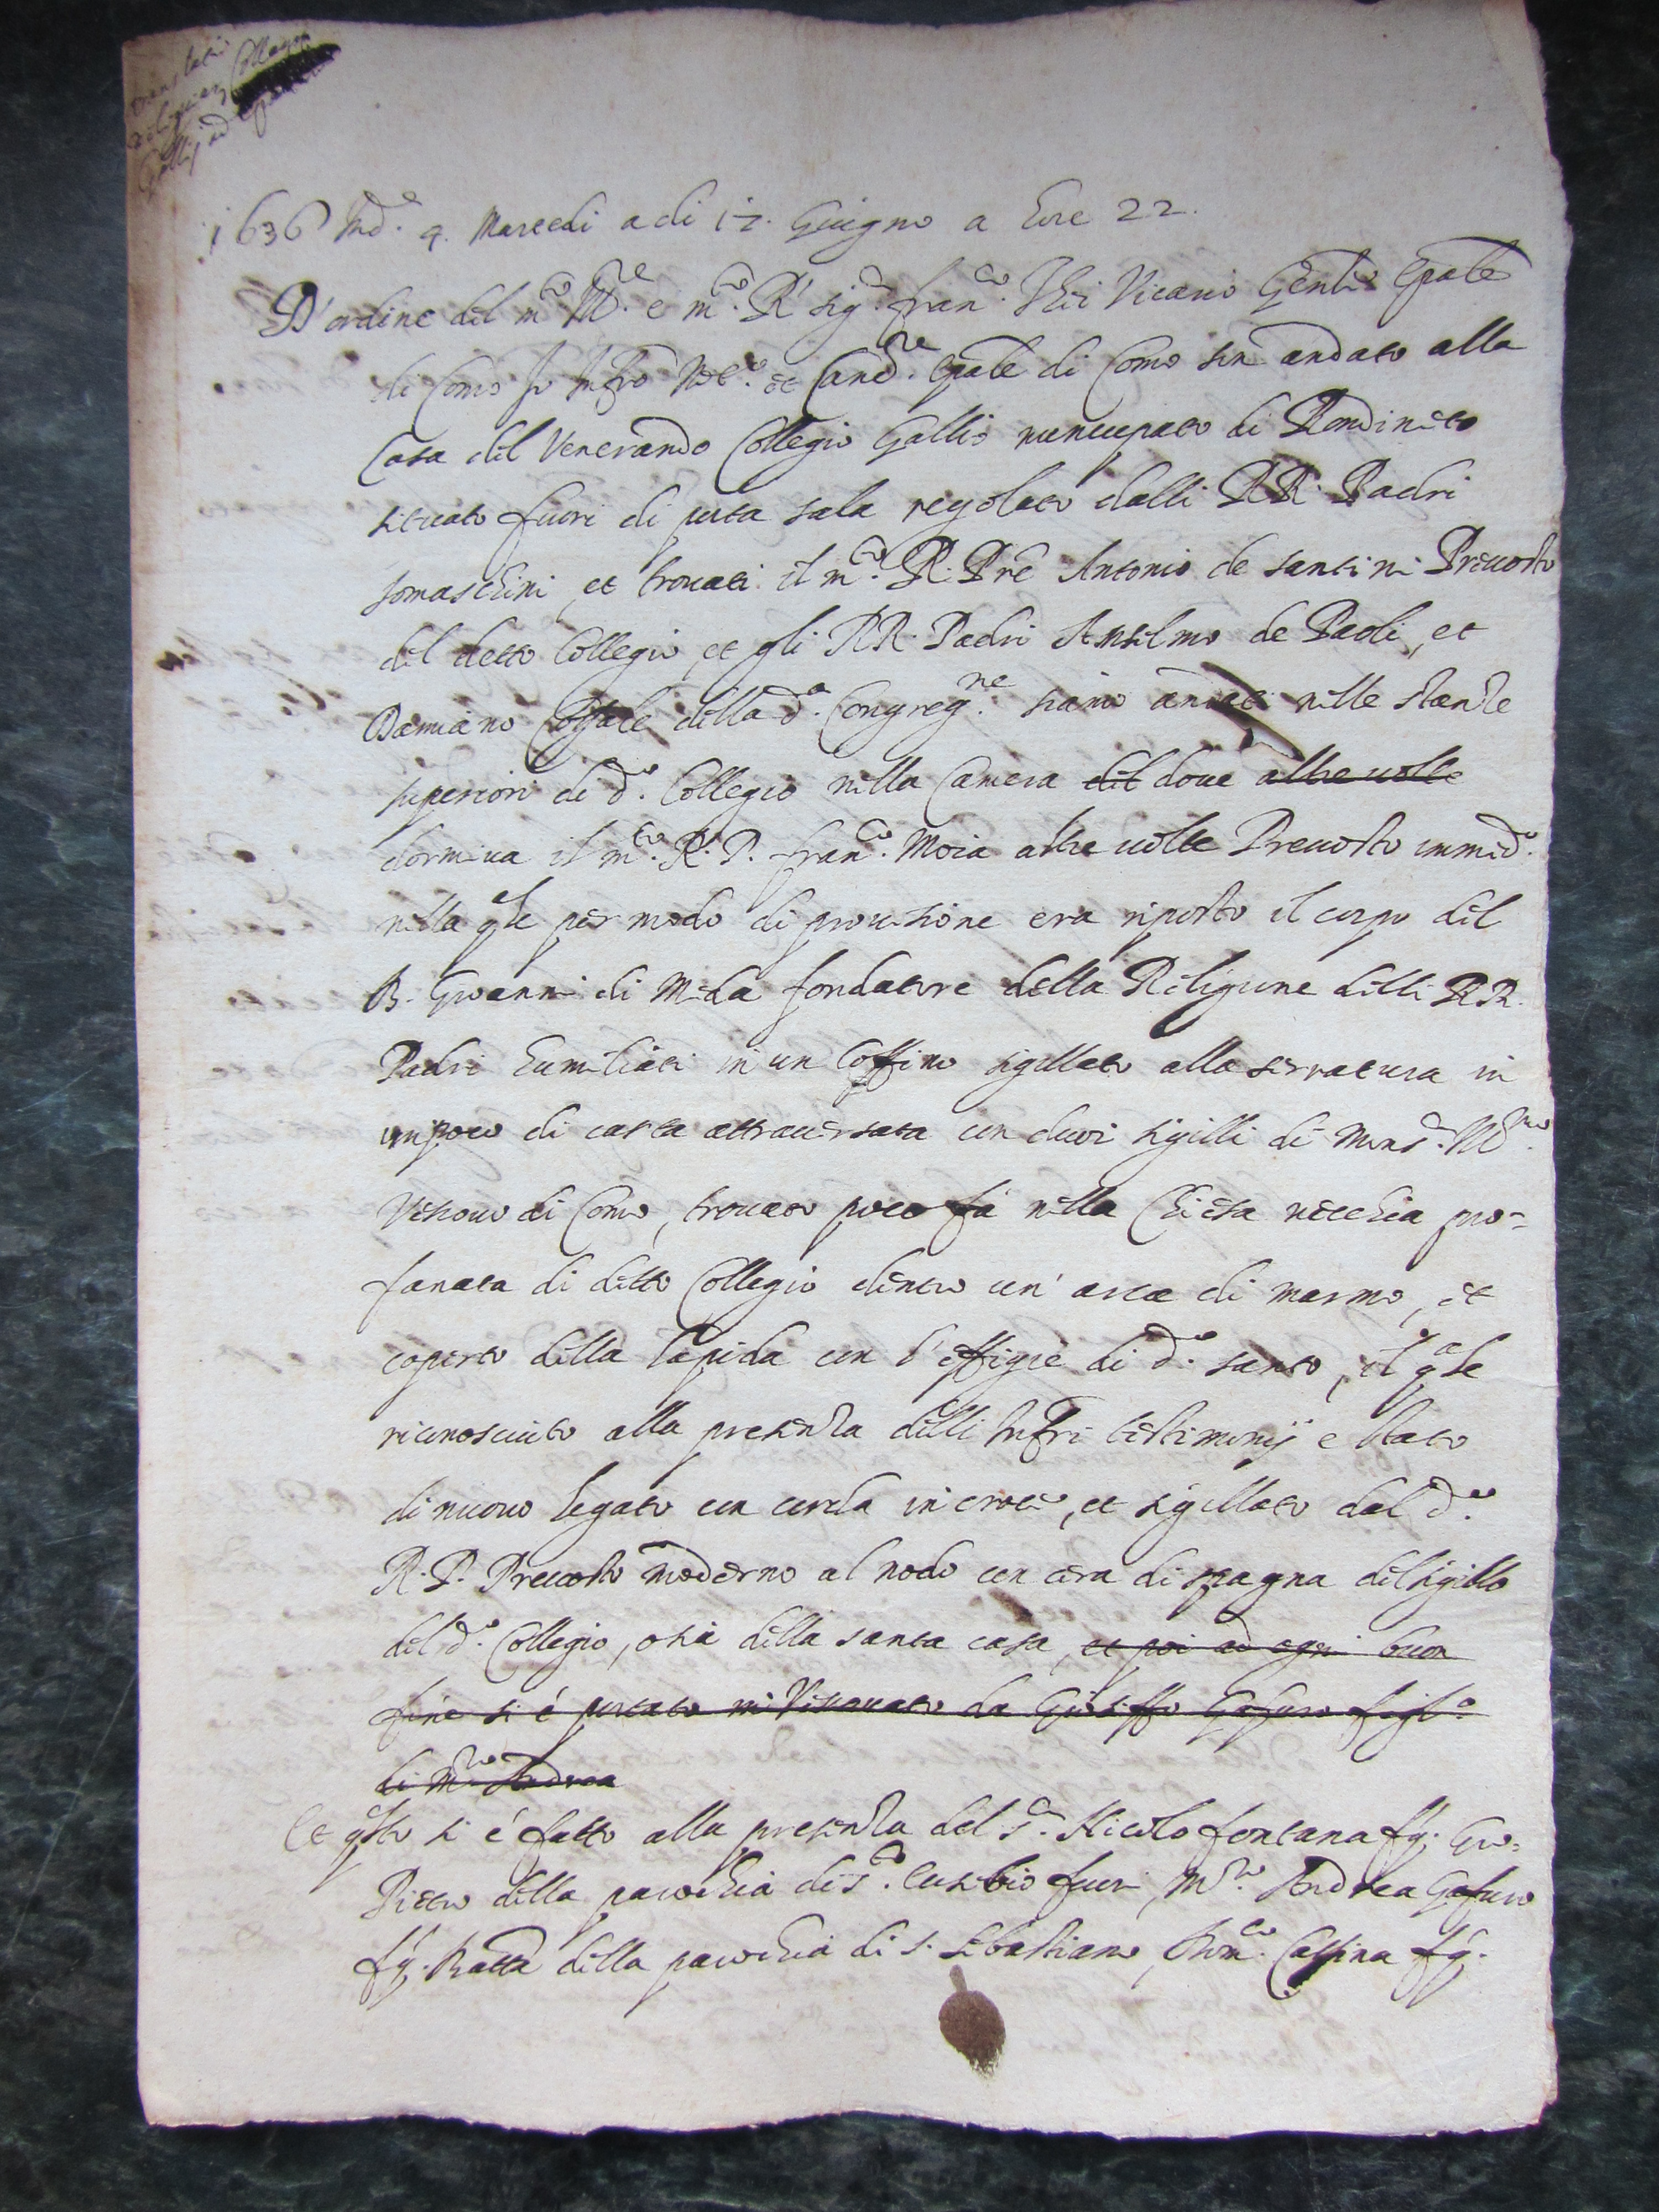 1636 Ind.e 4. Marcedi a di 17. Giugno a hore 22.
D'ordine del m.to Ill.re e m.to R.do sig.r Fran.co Vicario Gen.le Epale
di Como Io Infro Not.o et Canc.re Epale di Como son andato alla
Casa del Venerando Collegio Gallio nuncupato di Rondineto
situato fuori di porta sala regolato dalli RR. Padri
somaschini, et trovati il m.to R. Pre Antonio de santini Prevosto
del detto Collegio, et gli RR. Padri Anselmo de Paoli, et
Damiano della d.a Congreg.ne siamo andati nelle stanze
superiori di d.o Collegio nella Camera del dove altre volte
dormiva il m.to R. P. Fran.co Moia altre volte Prevosto immed.o
nella qle per modo di provisione era riposto il corpo del
B. Giovanni di Meda fondatore della Religione delli RR.
Padri humiliati in un Coffino sigillato alla serratura in
un poco di carta attraversata con duoi sigilli di Mons.r Ill.mo
Vescovo di Como, trovato poco fà nella Chiesa vecchia pro=
fanata di detto Collegio dentro un' arca di marmo, et
coperto della lapida con l'effigie di d.o santo, il qle
riconosciuto alla presenza delli Infri testimonij e stato
di nuovo legato con corda in croce, et sigillato dal d.o
R. P. Prevosto moderno al nodo con cera di spagna del sigillo
del d.o Collegio, o sia della santa casa, et poi ad ogni buon
fine si é portato in Vescovato da Gioseffo Gafuro figl.o
di M.ro Andrea
Et qsto si é fatto alla presenza del s.r Nicolo fontana fq. Gio=
Pietro della parochia di s.to Eusebio fuori, M.ro Andrea Gafuro
fq. Batta della parochia di s. Sebastiano, Dom.co Caspina fq.